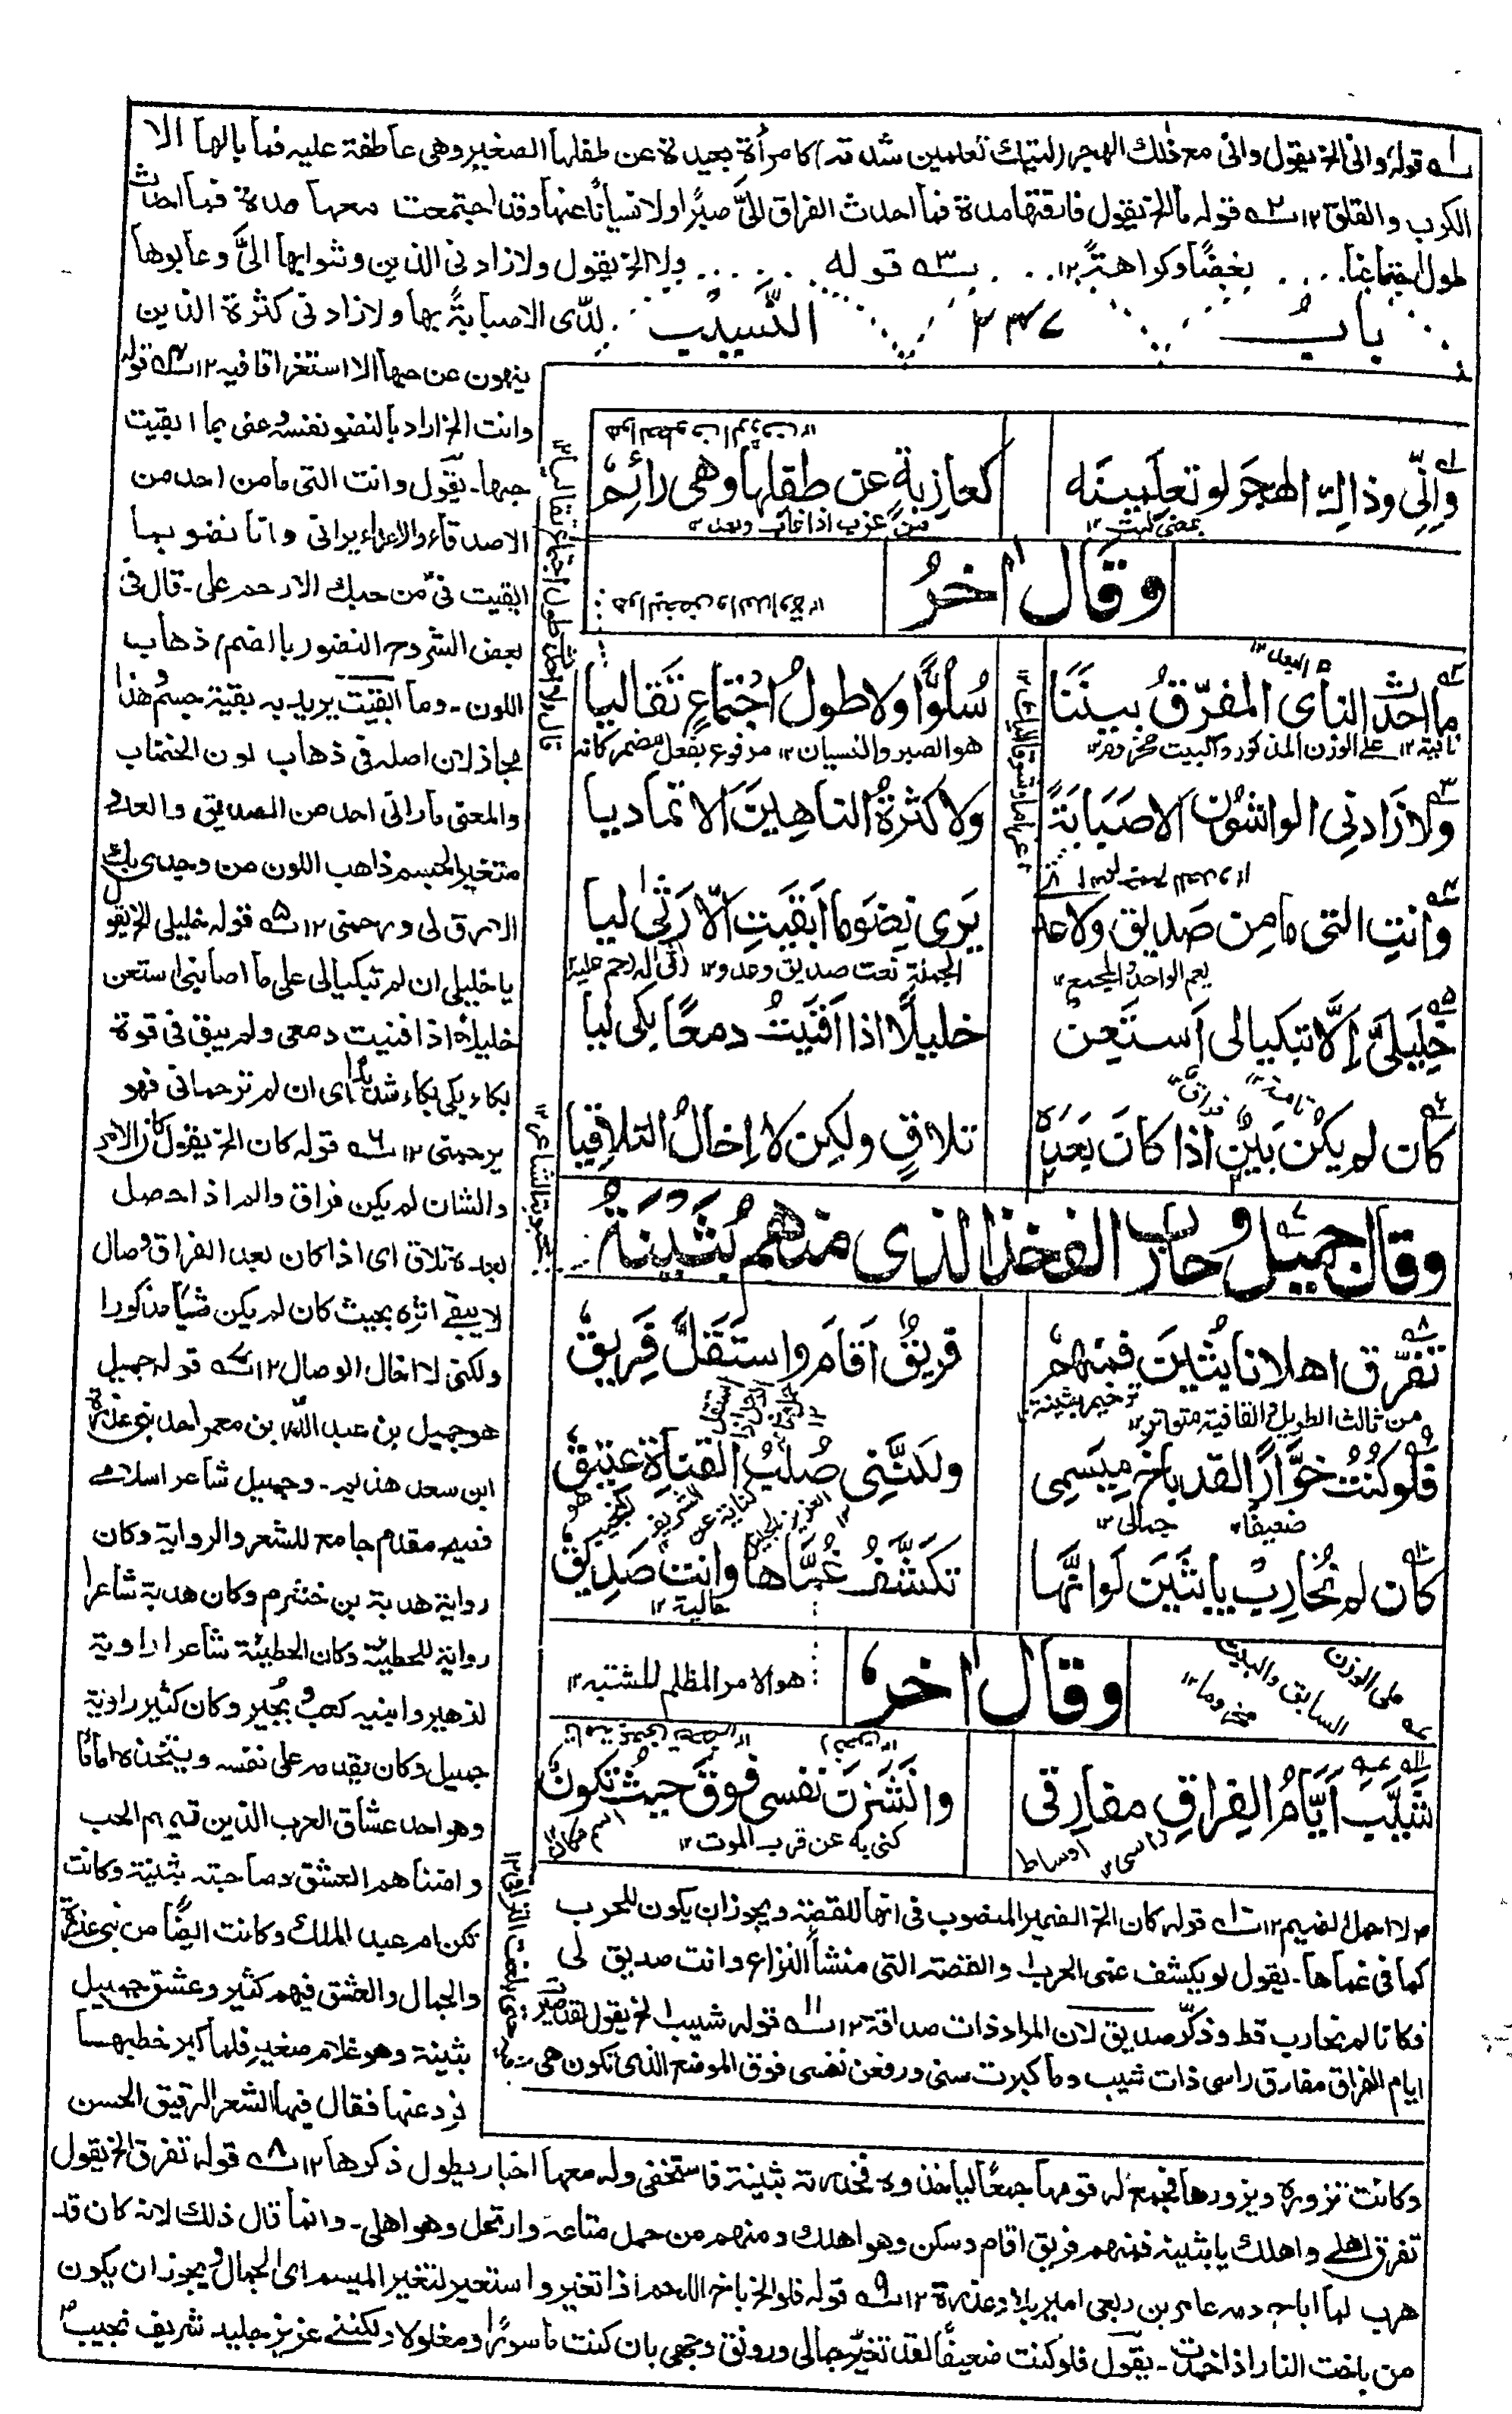 له قوله وانى الخ يقول وانى مع ذلك الهجر (ليتك تعلمين شدته) كامرأة بعيدة عن طفلها الصغير وهى عاطفة عليه فما بالها الا
الكرب والقلق ١٢ ٢ه قوله ما الخ يقول فارقتها مدة فما احدث الفراق لى صبرًا ولا نسيانًا عنها وقد اجتمعت معها مدة فما احدث
طول اجتماعنا بغضًا وكراهةً ١٢ ٣ه قوله ولا الخ يقول ولا زادنى الذين وشوا بها الىّ وعابوها
باب ٢٣٧ النسيب
لدى الا صبابةً بها ولا زادنى كثرة الذين
ينهون عن حبها الا استغراقا فيه ١٢ ٤ه قوله
وانت الخ اراد بالنضو نفسه عنى بما ابقيت
حبها ـ يقول وانت التى ما من احد من
الاصدقاء والاعداء يرانى وانا نضو بما
ابقيت فىّ من حبك الا رحم على ـ قال فى
بعض الشروح النضور بالضم ذهاب
اللون ـ وما ابقيت يريد به بقية جسمه وهذا
مجاز لان اصله فى ذهاب لون الخضاب
والمعنى ما رانى احد من الصديق والعدو
متغير الجسم ذاهب اللون من وجدى بك
الا رق لى ورحمنى ١٢ ٥ه قوله خليلى الخ يقول
يا خليلى ان لم تبكيا لى على ما اصابنى استعن
خليلا اذا افنيت دمعى ولم يبق فى قوة
بكاء يبكى بكاء شديدا اى ان لم ترحمانى فهو
يرحمنى ١٢ ٦ه قوله كان الخ يقول كان الامر
والشان لم يكن فراق والم اذا حصل
بعده تلاق اى اذا كان بعد الفراق وصال
لا يبقى اثره بحيث كان لم يكن شيأ مذكورا
ولكنى لا اخال الوصال ١٢ ٧ه قوله جميل
هو جميل بن عبد الله بن معمر احد بنى عذرة
ابن سعد هذيم ـ وجميل شاعر اسلامى
فصيح مقدم جامع للشعر والرواية وكان
رواية هدبة بن خشرم وكان هدبة شاعرا
رواية للحطيئة وكان الحطيئة شاعرا راوية
لزهير وابنيه كعب وبجير وكان كثير راوية
جميل وكان يقدمه على نفسه ويتخذه اماما
وهو احد عشاق العرب الذين تيمهم الحب
وافتناهم العشق وصاحبته بثينة وكانت
تكنى ام عبد الملك وكانت ايضًا من بنى عذرة
والجمال والعشق فيهم كثير وعشق جميل
بثينة وهو غلام صغير فلما كبر خطبها
فرد عنها فقال فيها الشعر الرقيق الحسن
وَاِنِّى وذالِكِ الهجرَ لو تعلَمِينَه
كعازِبةٍ عن طفلِها وهى رائِمُ
بمعنى ليت ١٢
من عزب اذا غاب وبعد ١٢
وقال اٰخرُ
ما احدَثَ الناىُ المفرّقُ بينَنَا
سُلوًّا ولا طولُ اجْتماعٍ تَقَاليا
ثانية ١٢ على الوزن المذكور والبيت مخروم ١٢
هو الصبر والنسيان ١٢ مرفوع بفعل مضمر كانه
ولا زَادنِى الواشُون الا صَبَابَةً
ولا كثرةُ الناهِينَ الا تماديا
وانتِ التى ما مِن صَديق ولا عِدا
يَرى نِضوَ ما اَبقَيتِ اِلّا رَثٰى ليا
يعم الواحد والجمع ١٢
الجملة نعت صديق وعدو ١٢ رثى له رحم عليه
خليلىَّ اِلّا تبكيا لى اَستَعِنْ
خليلًا اذا افنَيتُ دمعًا بكى ليا
كان لم يكن بَينٌ اذا كانَ بَعدَهٗ
تلاقٍ ولكِن لا اِخالُ التلاقيا
وقال جميل وحارب الفخذ الذى منهم بُثَينَةُ
تفَرَّق اهلانا بُثينَ فمِنهم
فريقٌ اَقامَ واستَقَلَّ فَريقُ
ترخيم بثينة
من ثالث الطويل والقافية متواتر ١٢
فلو كنتُ خَوَّارًا لقد باخ مِيسَمِى
ولكنَّنِى صُلبُ القناةِ عتيقُ
ضعيفا ١٢ جمالى ١٢
كان لم نُحارِبْ يا بثَينَ لو انَّها
تكشَّفُ غُمّاها وانتِ صَدِيقُ
حالية ١٢
على الوزن السابق والبيت
وقال اٰخر
هو الامر المظلم المشتبه ١٢
شَيَّبَ اَيَّامُ الفِراقِ مفارِقى
وانْشَزنَ نفسى فوقَ حيثُ تكونُ
راسى ١٢ اوساط
كنى به عن قرب الموت ١٢ اسم مكان ١٢
لا احمل الضيم ١٢ ١٠ه قوله كان الخ الضمير المنصوب فى انها للقصة ويجوز ان يكون للحرب
كما فى غماها ـ يقول لو يكشف عنى الحرب والقصة التى منشأ النزاع وانت صديق لى
فكانا لم نحارب قط وذكّر صديق لان المراد ذات صداقة ١٢ ١١ه قوله شيب الخ يقول لقد صير
ايام الفراق مفارق راسى ذات شيب وما كبرت سنى ورفعن نفسى فوق الموضع الذى تكون هى
وكانت تزوره ويزورها فجمع له قومها جمعًا لياخذوه فحذرته بثينة فاستخفى وله معها اخبار يطول ذكرها ١٢ ٨ه قوله تفرق الخ يقول
تفرق اهلى واهلك يا بثينة فمنهم فريق اقام وسكن وهو اهلك ومنهم من حمل متاعه وارتحل وهو اهلى ـ وانما قال ذلك لانه كان قد
هرب لما اباح دمه عامر بن ربعى امير بلاد عذرة ١٢ ٩ه قوله فلو الخ باخ اللحم اذا تغير واستعير لتغير الميسم اى الجمال ويجوز ان يكون
من باخت النار اذا خمدت ـ يقول فلو كنت ضعيفًا لقد تغير جمالى ورونق وجهى بان كنت ماسورًا ومغلولا ولكننى عزيز جليد شريف نجيب